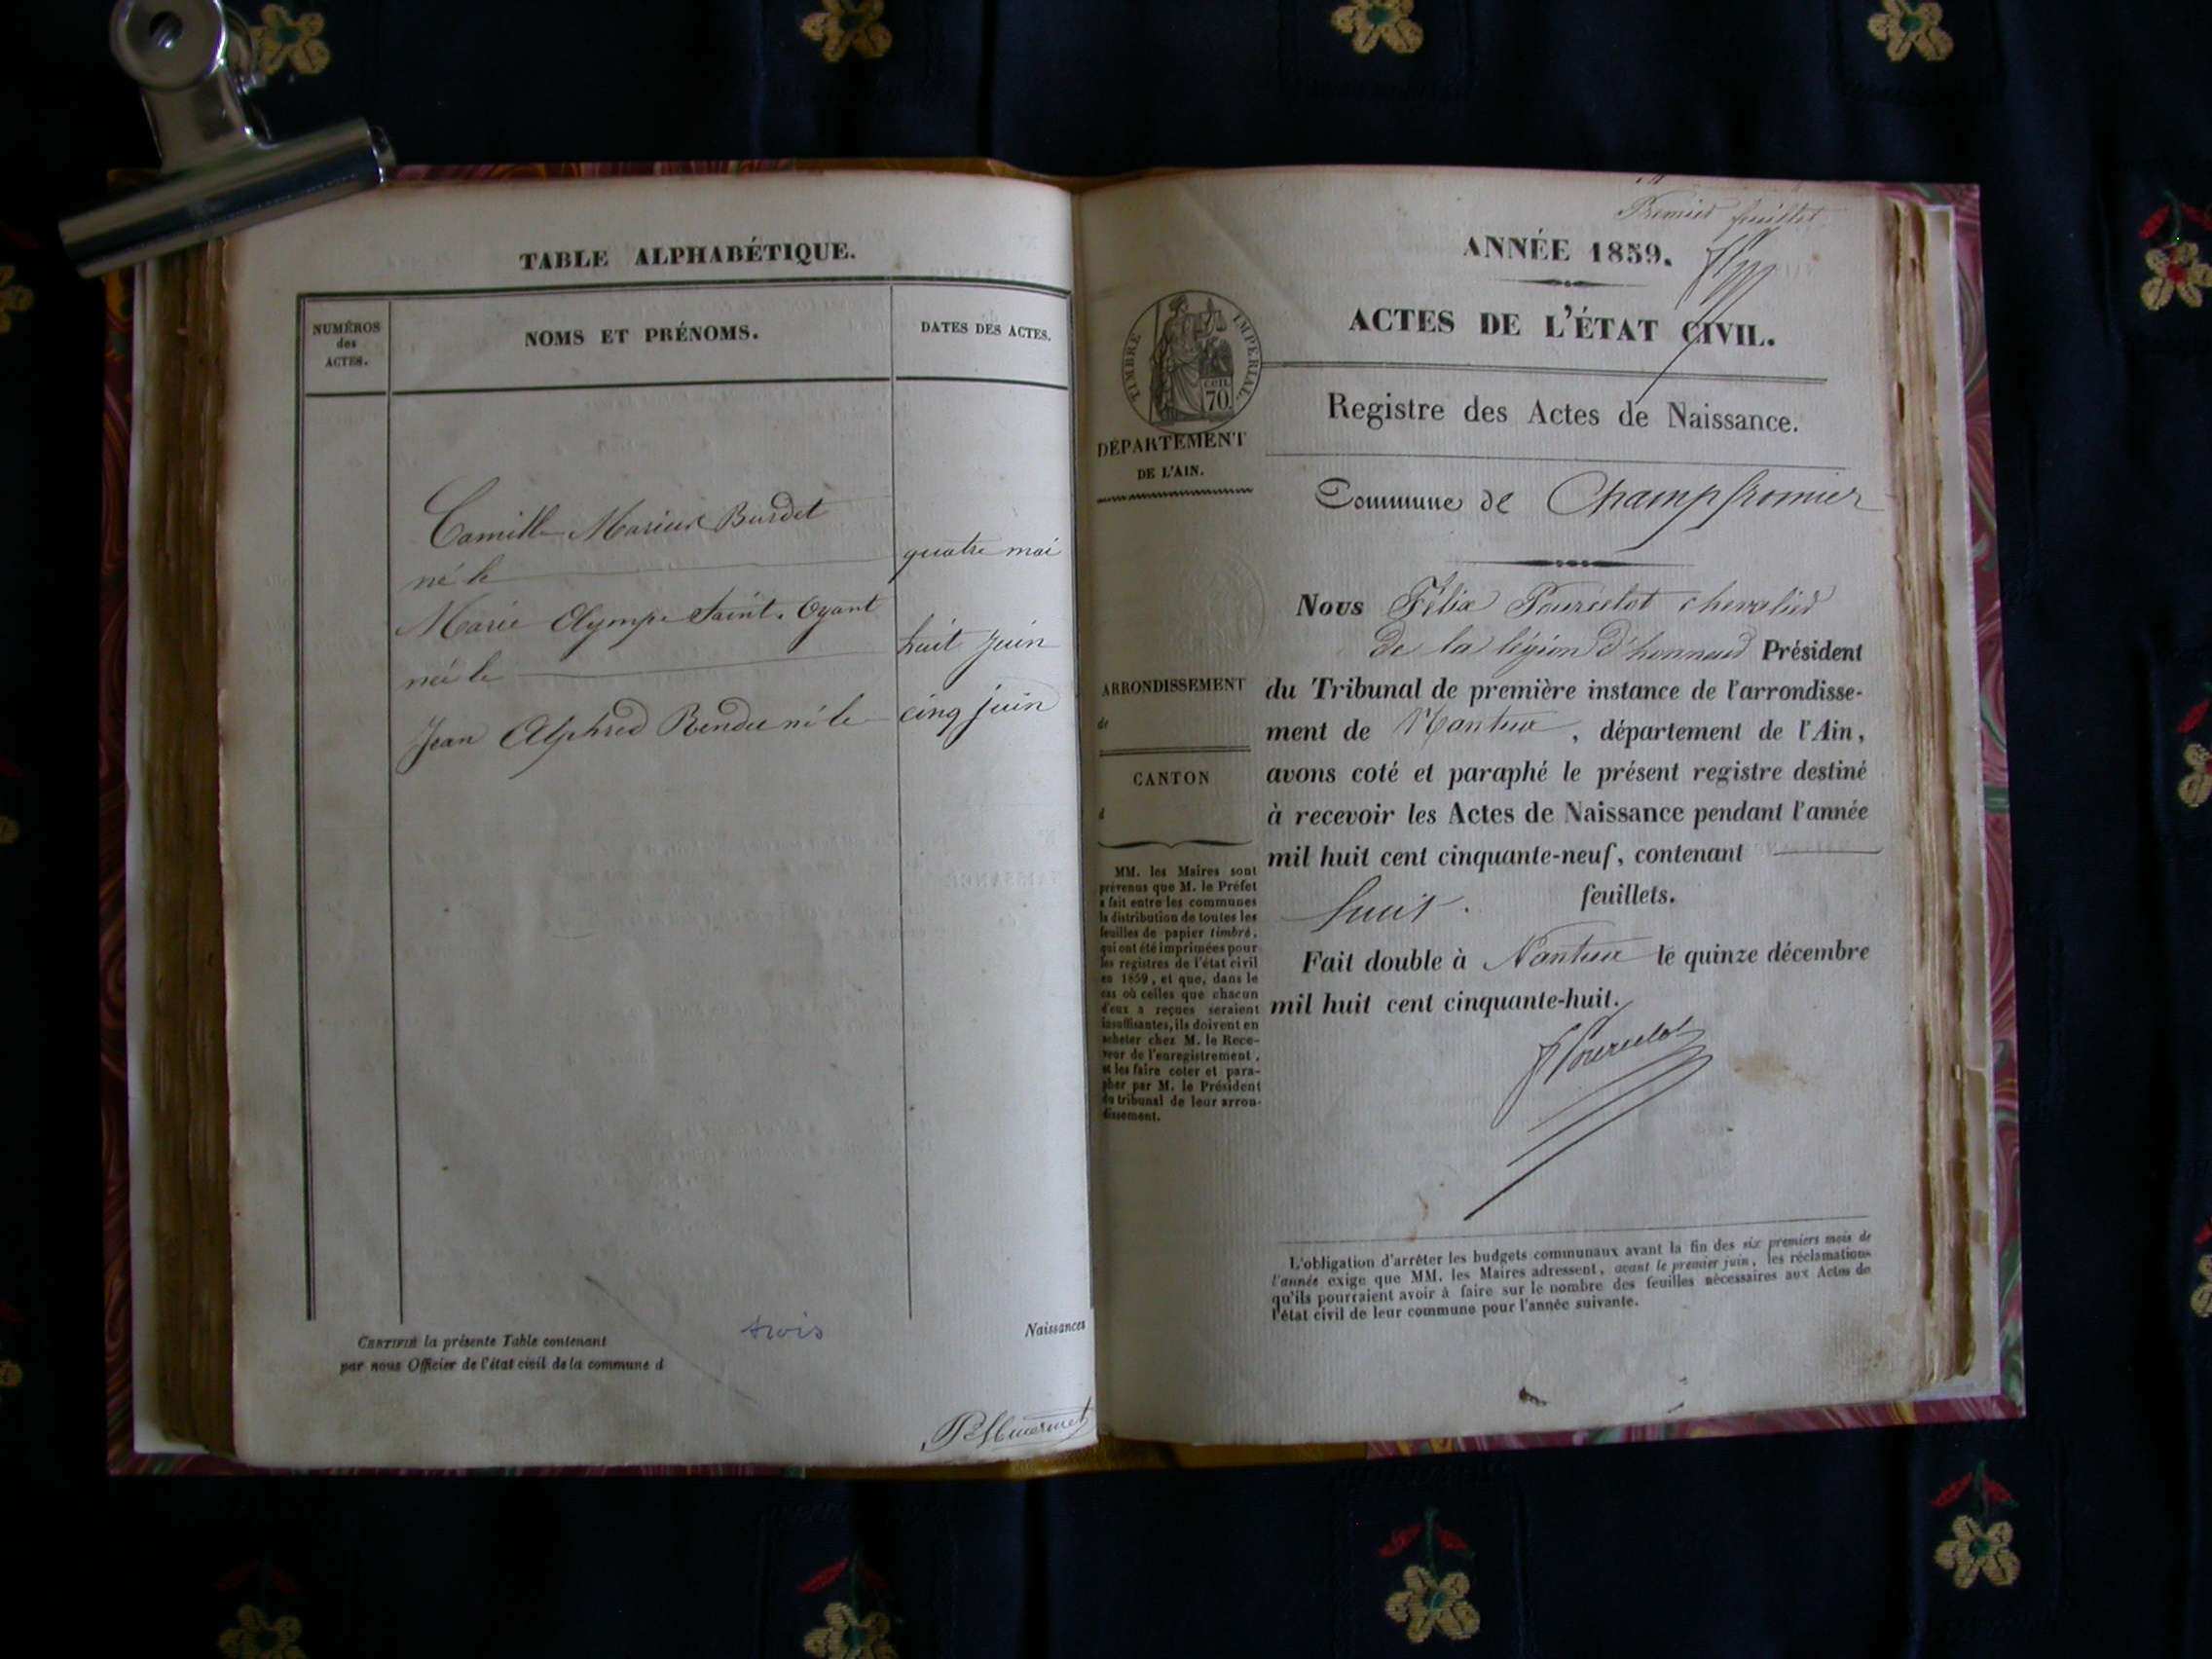 TABLE ALPHABÉTIQUE.
NUMÉROS
des
ACTES.
NOMS ET PRÉNOMS.
DATES DES ACTES.
Camille Marius Burdet
né le
quatre mai
Marie Olympe Saint-Oyant
née le
huit juin
Jean Alphred Rendu né le
cinq juin
CERTIFIÉ la présente Table contenant
trois
Naissances
par nous Officier de l'état civil de la commune d
Premier feuillet
ANNÉE 1859.
ACTES DE L'ÉTAT CIVIL.
Registre des Actes de Naissance.
TIMBRE IMPERIAL
CENT.
70
DÉPARTEMENT
DE L'AIN.
Commune de Champfromier
Nous Félix Pourcelot chevalier
de la légion d'honneur Président
du Tribunal de première instance de l'arrondisse-
ment de Nantua, département de l'Ain,
avons coté et paraphé le présent registre destiné
à recevoir les Actes de Naissance pendant l'année
mil huit cent cinquante-neuf, contenant
huit. feuillets.
Fait double à Nantua le quinze décembre
mil huit cent cinquante-huit.
FPourcelot
ARRONDISSEMENT
de
CANTON
d
MM. les Maires sont
prévenus que M. le Préfet
a fait entre les communes
la distribution de toutes les
feuilles de papier timbré,
qui ont été imprimées pour
les registres de l'état civil
en 1859, et que, dans le
cas où celles que chacun
d'eux a reçues seraient
insuffisantes, ils doivent en
acheter chez M. le Rece-
veur de l'enregistrement,
et les faire coter et para-
pher par M. le Président
du tribunal de leur arron-
dissement.
L'obligation d'arrêter les budgets communaux avant la fin des six premiers mois de
l'année exige que MM. les Maires adressent, avant le premier juin, les réclamations
qu'ils pourraient avoir à faire sur le nombre des feuilles nécessaires aux Actes de
l'état civil de leur commune pour l'année suivante.